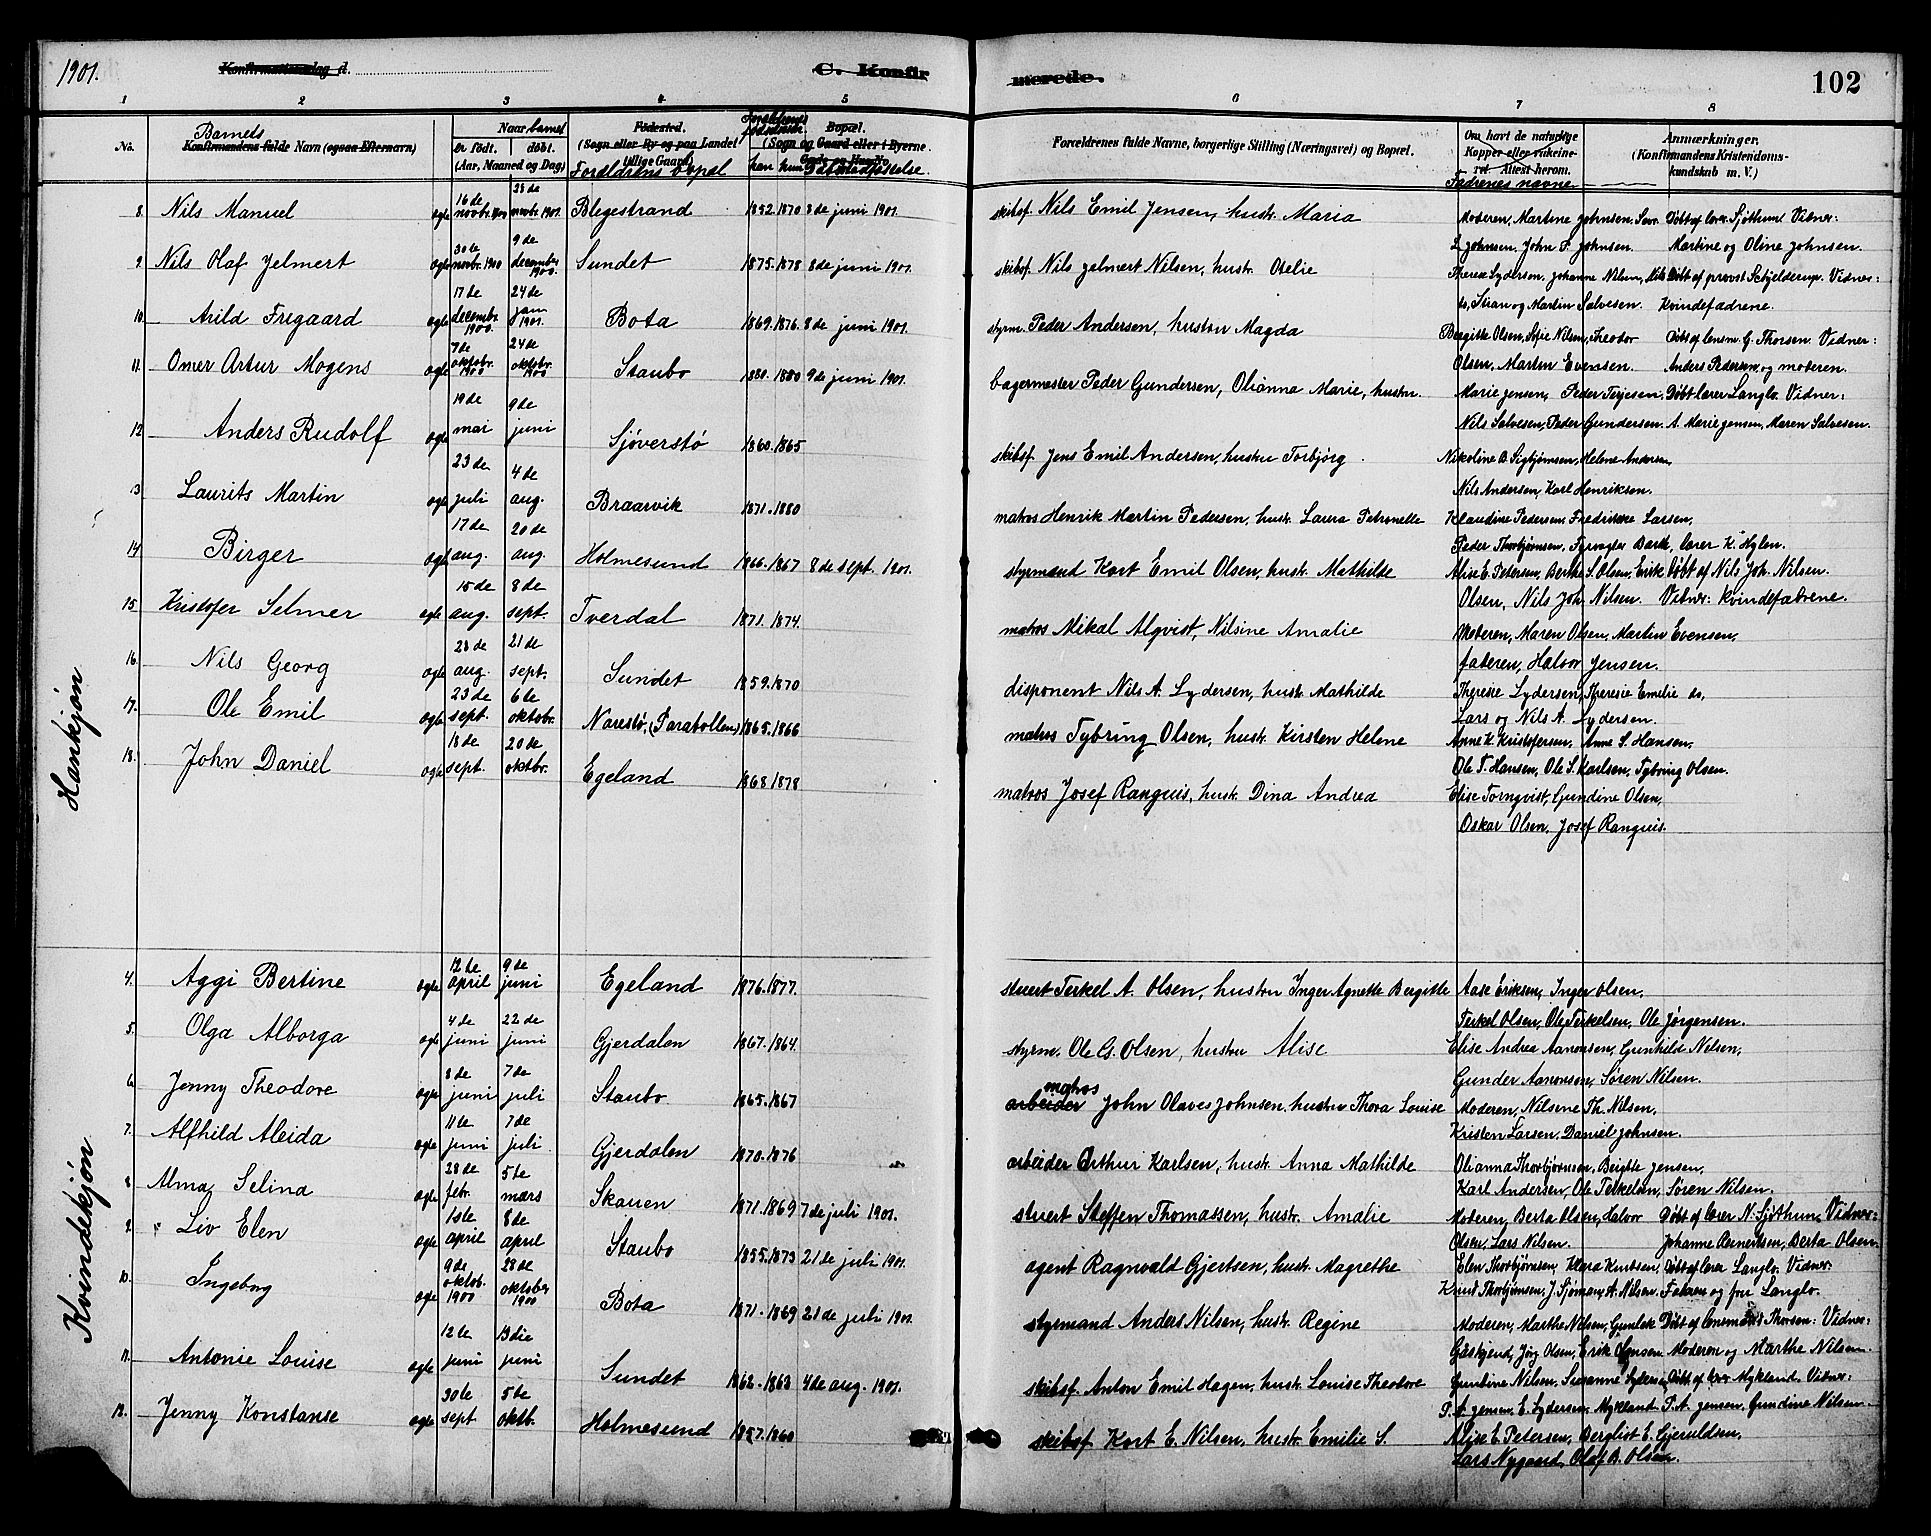 1901.
Konfirmationsdag d.
C. Konfirmerede.
102
1 2 3 4 5 6 7 8
No.
Barnets
Konfirmandens fulde Navn (ogsaa Efternavn)
Naar barnet
er født. døbt.
(Aar, Maaned og Dag)
Fødested.
(Sogn eller By og paa Landet tillige Gaard)
Forældrens bopæl
Forældrenes fødselsaar
han hun
Bopæl.
(Sogn og Gaard eller i Byerne Gade og Husno.)
Dåbsstadfæstelse.
Forældrenes fulde Navne, borgerlige Stilling (Næringsvei) og Bopæl.
Om havt de naturlige Kopper eller vakcineret. Attest herom.
Fadrenes navne
Anmærkninger.
(Konfirmandens Kristendomskundskab m. V.)
Hankjøn
8. Nils Manuel ogte 16 de novbr. 28 de novbr. Blegestrand 1852. 1870 8 de juni 1901. skibsf. Nils Emil Jensen, hustr. Maria Moderen, Martine Johnsen, Døbt af lærer Sjøthun Vidner:
L Johnsen, John P Johnsen. Martine og Oline Johnsen.
9. Nils Olaf Jelmert ogte 30 te novbr. 1900 9 de december 1900. Sundet 1875. 1878 8 de juni 1901. skibsf. Nils Jelmert Nilsen, hustr. Otelie Therese Lydersen, Johanne Nilsen, Nils Døbt af provst Schjelderup. Vidner:
og Martin Salvesen. Kvindefadrene.
10. Arild Fregaard ogte 17 de decembr. 1900. 24 de jan 1901. Bota 1869. 1876. 8 de juni 1901. styrm. Peder Andersen, hustru Magda Bergitte Olsen, Sofie Nilsen, Theodor Døbt af lensm. G. Thorsen. Vidner:
Olsen, Martin Evensen. Anders Pedersen og moderen.
11. Omer Artur Mogens ogte 7 de oktobr. 1900 24 de oktobr. 1900 Staubo 1880. 1880 9 de juni 1901. bagermester Peder Gundersen, Olianna Marie, hustru. Marie Jensen, Peder Terjesen, Døbt lærer Langlo. Vidner:
Nils Salvesen, Peder Gundersen. A. Marie Jensen, Maren Salvesen.
12. Anders Rudolf ogte 19 de mai 9 de juni Sjøverstø 1860. 1865 skibsf. Jens Emil Andersen, hustru Torbjørg. Nikoline B. Sigbjørnsen, Helene Andersen,
Nils Andersen, Karl Henriksen.
13. Laurits Martin ogte 23 de juli 4 de aug. Braarvik 1871. 1880 matros Henrik Martin Pedersen, hustr. Laura Petronelle Klaudine Pedersen, Fredrikke Larsen,
Peder Thorbjørnsen, Fyrvogter Barth, lærer K. Hylen.
14. Birger ogte 17 de aug. 20 de aug. Holmesund 1866. 1867 8 de sept. 1901. styrmand Kort Emil Olsen, hustr. Mathilde Alise E. Petersen, Berthe S. Olsen, Erik Døbt af Nils Joh. Nilsen.
Olsen, Nils Joh. Nilsen. Vidner: Kvindefadrene.
15. Kristofer Selmer ogte 15 de aug. 8 de sept. Tverdal 1871. 1874. matros Mikal Alqvist, Nilsine Amalie Moderen, Maren Olsen, Martin Evensen,
faderen, Halvor Jensen.
16. Nils Georg ogte 28 de aug. 21 de sept. Sundet 1859. 1870 disponent Nils A. Lydersen, hustr. Mathilde Theresie Lydersen, Theresie Emilie do,
Lars og Nils A. Lydersen.
17. Ole Emil ogte 23 de sept. 6 te oktobr. Narestø, (Parabollen) 1865. 1866 matros Tybring Olsen, hustr. Kirsten Helene Anne K. Kristofersen, Anne S. Hansen,
Ole T. Hansen, Ole S. Karlsen, Tybring Olsen.
18. John Daniel ogte 18 de sept. 20 de oktobr. Egeland 1868 1878 matros Josef Ranquis, hustr. Dina Andrea Elise Tornqvist, Gundine Olsen,
Oskar Olsen, Josef Ranquis.
Kvindekjøn
4. Aggi Bertine ogte 12 te april 9 de juni Egeland 1876. 1877. stuert Terkel A. Olsen, hustru Inger Agnette Bergitte Aase Eriksen, Inger Olsen,
Terkel Olsen, Ole Terkelsen, Ole Jørgensen.
5. Olga Alborga ogte 4 de juni 22 de juni Gjerdalen 1867. 1864. styrm. Ole G. Olsen, hustru Alise Elise Andrea Aanonsen, Gunhild Nilsen,
Gunder Aanonsen, Søren Nilsen.
6. Jenny Theodore ogte 8 de juni 7 de juli Staubo 1865. 1867 arbeider matros John Olaves Johnsen, hustru Thora Louise Moderen, Nilsene Th. Nilsen,
Kristen Larsen, Daniel Johnsen.
7. Alfhild Aleida ogte 11 te juni 7 de juli Gjerdalen 1870. 1876 arbeider Arthur Karlsen, hustr. Anna Mathilde Olianna Thorbjørnsen, Bergitte Jensen,
Karl Andersen, Ole Terkelsen, Søren Nilsen.
8. Alma Selina ogte 28 de febr. 5 te mars Skauen 1871. 1869 7 de juli 1901. stuert Steffen Thomassen, hustr. Amalie Moderen, Berta Olsen, Halvor Døbt af lærer N. Sjøthun, Vidner:
Olsen, Lars Nilsen. Johanne Reinertsen, Berta Olsen.
9. Liv Elen ogte 1 ste april 8 de april Staubo 1855. 1873 21 de juli 1901. agent Ragnvald Gjertsen, hustr. Magrethe Elen Thorbjørnsen, Klara Knutsen, Døbt af lærer Langlo. Vidner:
Knud Thorbjørnsen, J. Sjøman, A. Nilsen. Faderen og fru Langlo.
10. Ingeborg ogte 9 de oktob. 1900 28 de oktober 1900 Bota 1871. 1869 21 de juli 1901. styrmand Anders Nilsen, hustr. Regine Moderen, Marthe Nilsen, Gunlek Døbt af lensmand Thorsen: Vidner:
Gåskjend, Jørg Olsen, Erik Moderen og Marthe Nilsen.
11. Antonie Louise ogte 12 te juni 13 die juni Sundet 1862. 1863 4 de aug. 1901. skibsf. Anton Emil Hagen, hustr. Louise Theodore Gundine Nilsen, Susanne Døbt af lærer Mykland. Vidner:
P. A. Jensen, E. Lydersen, Mykland. P. A. Jensen, Gundine Nilsen.
12. Jenny Konstanse ogte 30 te sept 5 de oktb. Holmesund 1857. 1860 skibsf. Kort E. Nilsen, hustr. Emilie S. Alise E. Petersen, Bergliot E. Gjeruldsen,
Lars Nygaard, Olaf B. Olsen.